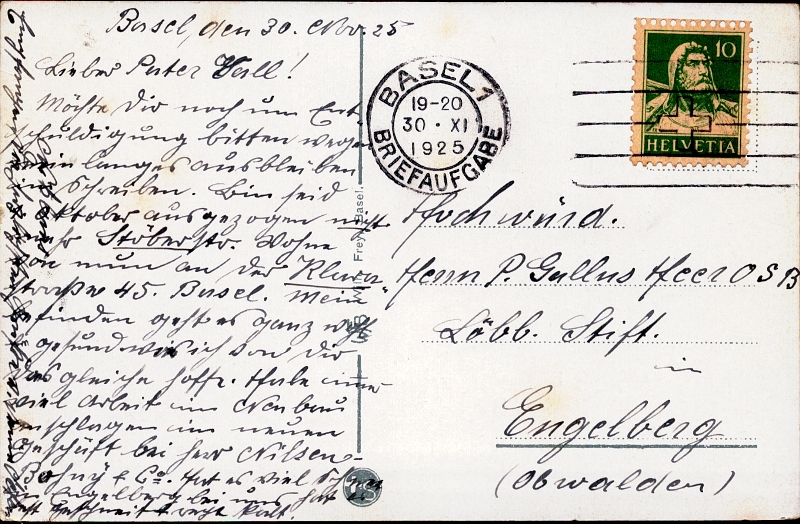 Basel, den 30. Nov. 25
Lieber Pater Gall!
Möchte Dir noch um Ent-
schuldigung bitten wegen
mein langes ausbleiben
Schreiben. Bin seid
Oktober ausgezogen nicht
mehr Stöberstr. Wohne
von nun an der Klara
strasse 45. Basel. Mein
befinden geht es ganz
gesund wie ich von Dir
das gleiche hoffe. Habe immer
viel Arbeit im Neubau
im neuen
Geschäft bei Herr Nilsen-
Bohny & Co. Hat es viel Schnee
in Engelberg bei uns hat
es fest geschneit & recht kalt!
BASEL 1
19-20
30 · XI
1925
BRIEFAUFGABE
10
HELVETIA
Frey, Basel.
Hochwürd.
Herrn P. Gallus Heer OSB
Löbb. Stift.
in
Engelberg
(Obwalden)